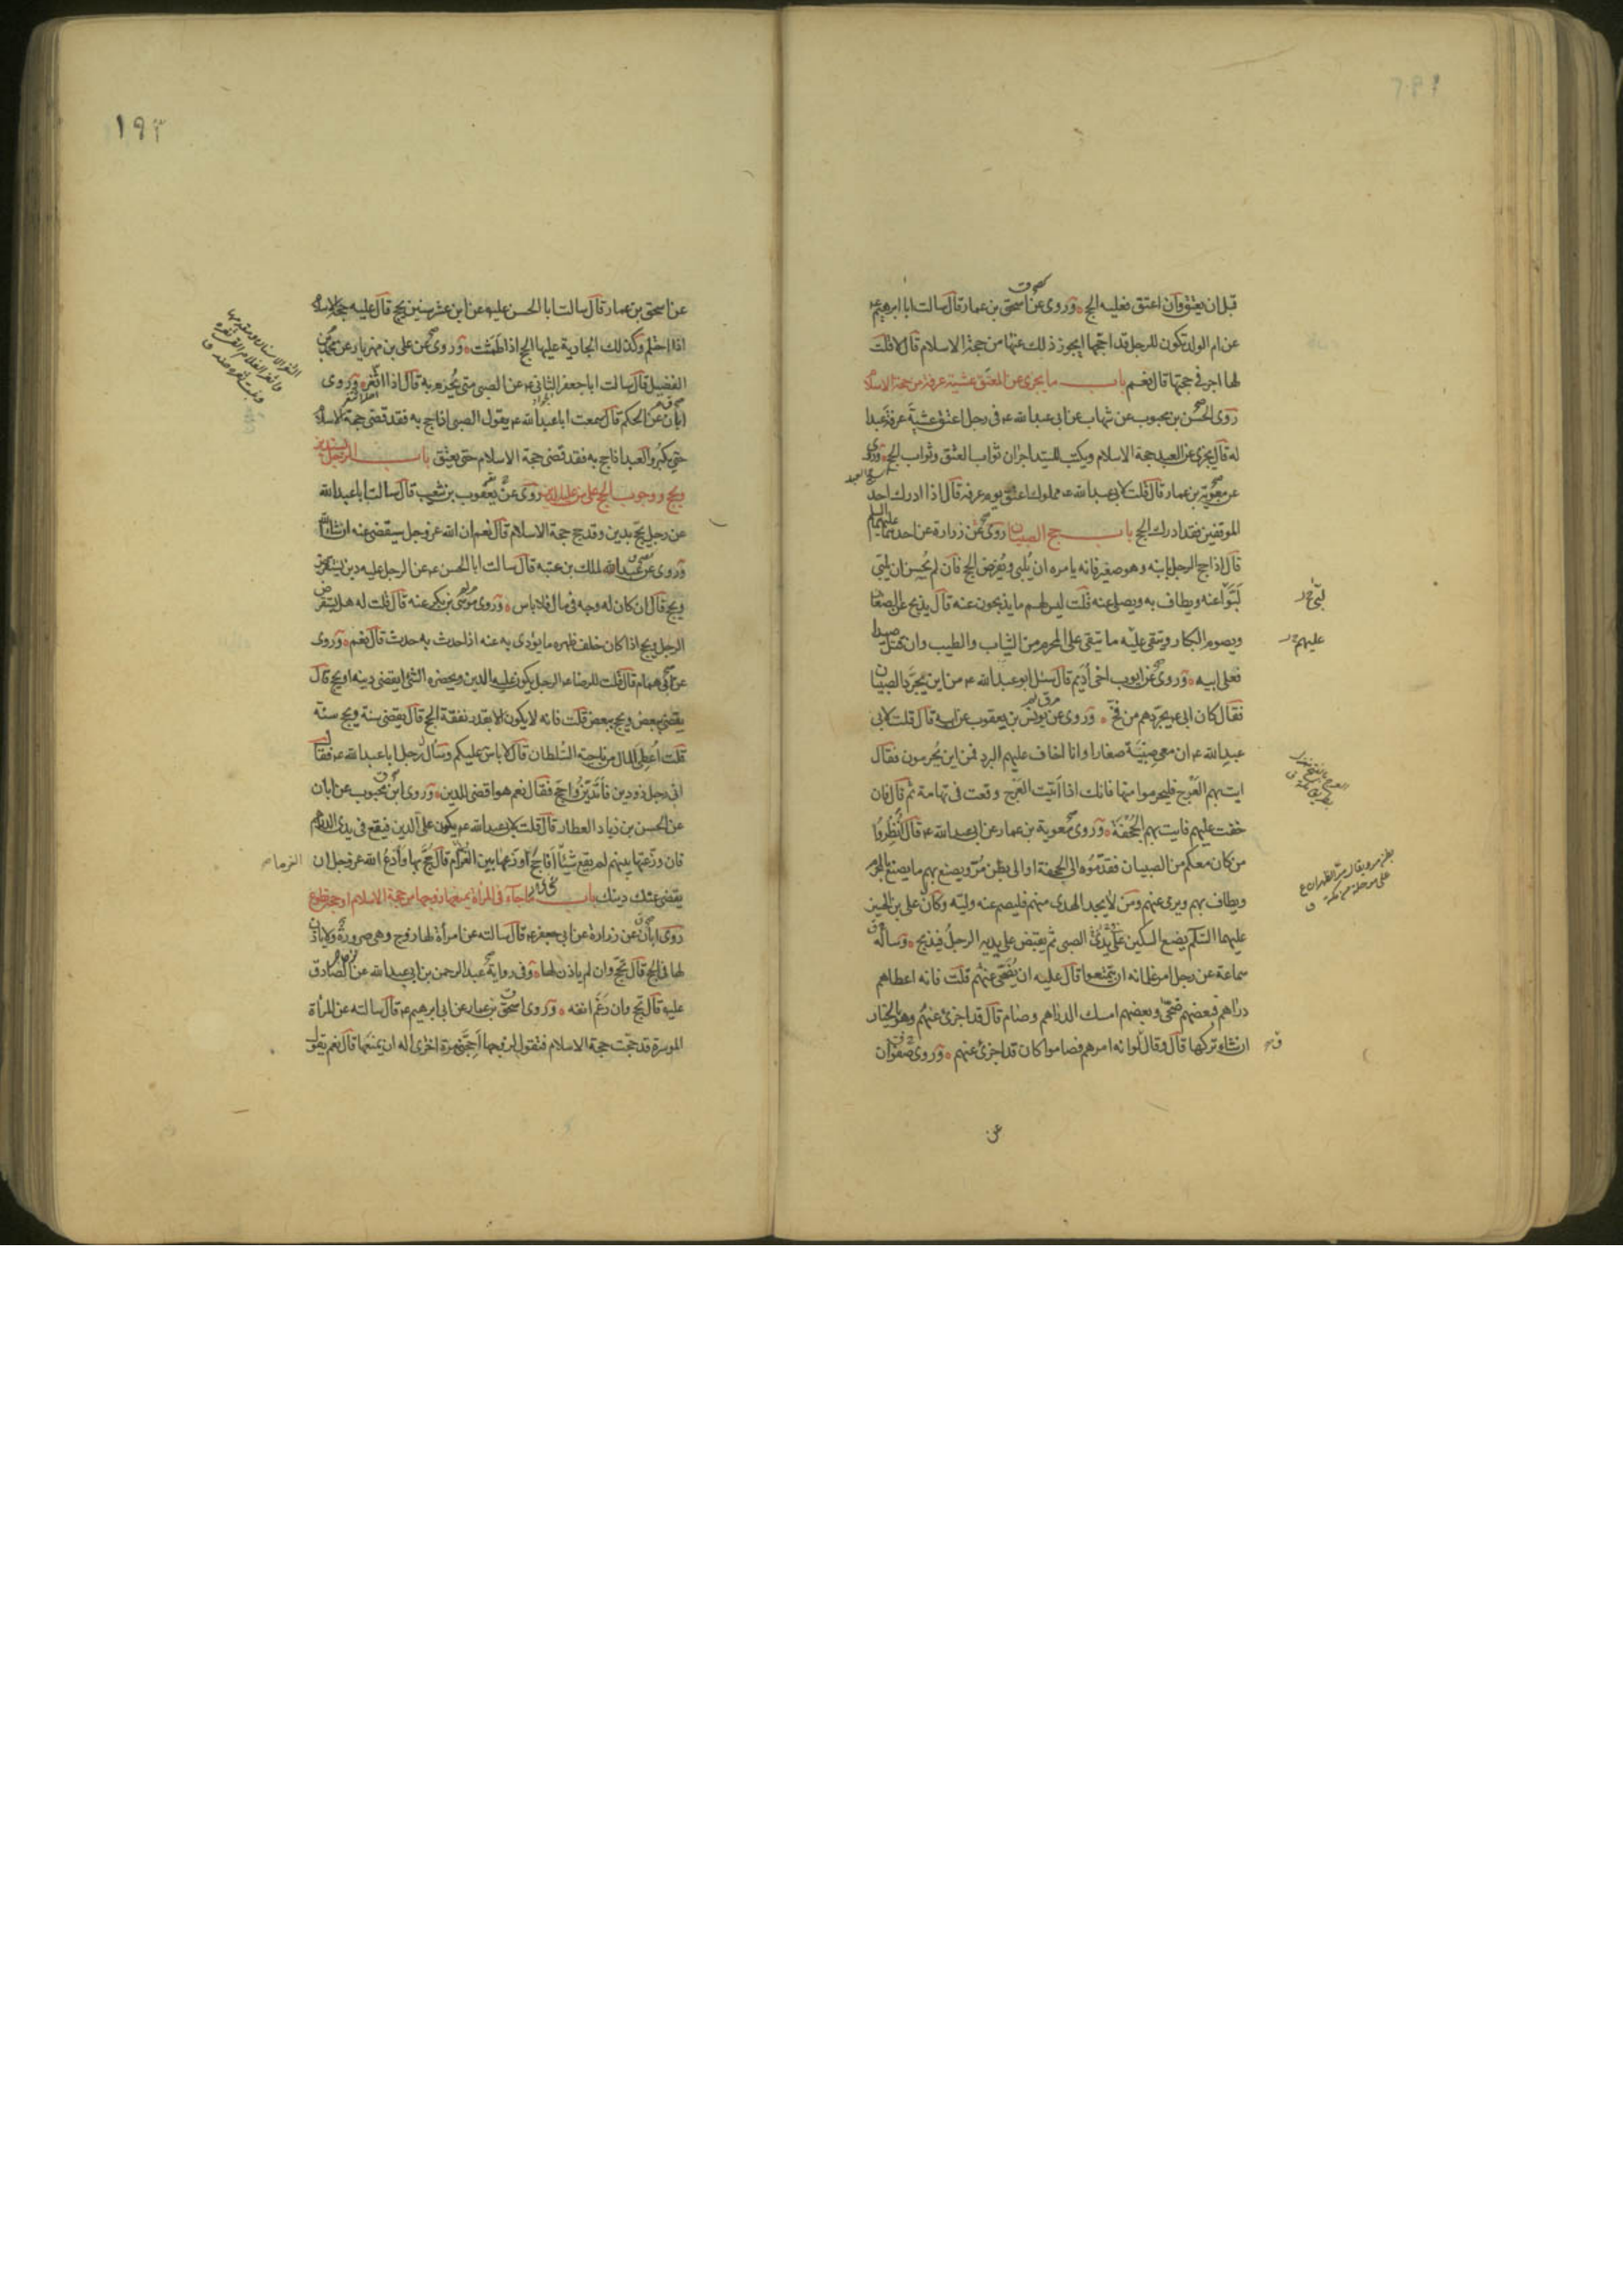 قبل ان يعتق وان اعتق فعليه الحج وروى عن اسحق بن عمار قال سالت ابا ابرهيم ع
عن ام الولد تكون للرجل قد احجها ايجوز ذلك عنها من حجة الاسلام قال لا قلت
لها اجر في حجتها قال نعم باب ما يجزى عن المعتق عشية عرفة من حجة الاسلام
روى الحسن بن محبوب عن شهاب عن ابي عبد الله ع في رجل اعتق عشية عرفة عبدا
له قال يجزى عن العبد حجة الاسلام ويكتب للسيد اجران ثواب العتق وثواب الحج وروى
عن معوية بن عمار قال قلت لابي عبد الله ع مملوك اعتق يوم عرفة قال اذا ادرك احد
الموقفين فقد ادرك الحج باب حج الصبيان روى عن زرارة عن احدهما عليهما السلم
قال اذا حج الرجل بابنه وهو صغير فانه يامره ان يلبي ويفرض الحج فان لم يحسن ان يلبي
لبوا عنه ويطاف به ويصلى عنه قلت ليس لهم ما يذبحون عنه قال يذبح عن الصغار
ويصوم الكبار ويتقى عليه ما يتقى على المحرم من الثياب والطيب وان قتل صيدا
فعلى ابيه وروى عن ايوب اخي اديم قال سئل ابو عبد الله ع من اين يجرد الصبيان
فقال كان ابي ع يجردهم من فخ وروى عن يونس بن يعقوب عن ابيه قال قلت لابي
عبد الله ع ان معى صبية صغارا وانا اخاف عليهم البرد فمن اين يحرمون فقال
ايت بهم العرج فليحرموا منها فانك اذا اتيت العرج وقعت في تهامة ثم قال فان
خفت عليهم فايت بهم الجحفة وروى معوية بن عمار عن ابي عبد الله ع قال انظروا
من كان معكم من الصبيان فقدموه الى الجحفة او الى بطن مر ويصنع بهم ما يصنع بالمحرم
ويطاف بهم ويرمى عنهم ومن لا يجد الهدى منهم فليصم عنه وليه وكان على بن الحسين
عليهما السلم يضع السكين في يد الصبى ثم يقبض على يديه الرجل فيذبح وساله
سماعة عن رجل امر غلمانه ان يتمتعوا قال عليه ان يضحى عنهم قلت فانه اعطاهم
دراهم فبعضهم ضحى وبعضهم امسك الدراهم وصام قال قد اجزى عنهم وهو بالخيار
ان شاء تركها قال وقال لو انه امرهم فصاموا كان قد اجزى عنهم وروى صفوان
عن
عليهم
١٩٣
عن اسحق بن عمار قال سالت ابا الحسن عليه عن ابن عشر سنين يحج قال عليه حجة الاسلام
اذا احتلم وكذلك الجارية عليها الحج اذا طمثت وروى عن على بن مهزيار عن محمد بن
الفضيل قال سالت ابا جعفر الثانى ع عن الصبى متى يحرم به قال اذا اثغر وروى
ابان عن الحكم قال سمعت ابا عبد الله ع يقول الصبى اذا حج به فقد قضى حجة الاسلام
حتى يكبر والعبد اذا حج به فقد قضى حجة الاسلام حتى يعتق باب الرجل يستدين
ويحج ووجوب الحج على من عليه الدين روى عن يعقوب بن شعيب قال سالت ابا عبد الله
عن رجل يحج بدين وقد حج حجة الاسلام قال نعم ان الله عز وجل سيقضى عنه ان شاء الله
وروى عن عبد الملك بن عتبه قال سالت ابا الحسن ع عن الرجل عليه دين يستقرض
ويحج قال ان كان له وجه في مال فلا باس وروى موسى بن بكر عنه قال قلت له هل يستقرض
الرجل ويحج اذا كان خلف ظهره ما يؤدى به عنه اذا حدث به حدث قال نعم وروى
عن ابي همام قال قلت للرضا ع الرجل يكون عليه الدين ويحضره الشئ ايقضى دينه او يحج قال
يقضى ببعض ويحج ببعض قلت فانه لا يكون الا بقدر نفقة الحج قال يقضى سنة ويحج سنة
قلت اعطى المال من ناحية السلطان قال لا باس عليكم وسال رجل ابا عبد الله ع فقال
انى رجل ذو دين فاتدين واحج فقال نعم هو اقضى للدين وروى ابن محبوب عن ابان
عن الحسن بن زياد العطار قال قلت لابي عبد الله ع يكون على الدين فيقع في يدى الدراهم
فان وزعتها بينهم لم يقع شيئا افاحج او ازعها بين الغرام قال حج بها وادع الله عز وجل ان
يقضى عنك دينك باب ما جاء في المراة يمنعها زوجها من حجة الاسلام او حجة تطوع
روى ابان عن زرارة عن ابي جعفر ع قال سالته عن امرأة لها زوج وهى صرورة ولا ياذن
لها في الحج قال تحج وان لم ياذن لها وفى رواية عبد الرحمن بن ابي عبد الله عن الصادق
عليه قال تحج وان رغم انفه وروى اسحق بن عمار عن ابي ابرهيم ع قال سالته عن المراة
الموسرة قد حجت حجة الاسلام فتقول لزوجها احجنى مرة اخرى اله ان يمنعها قال نعم يقول
الغرماء